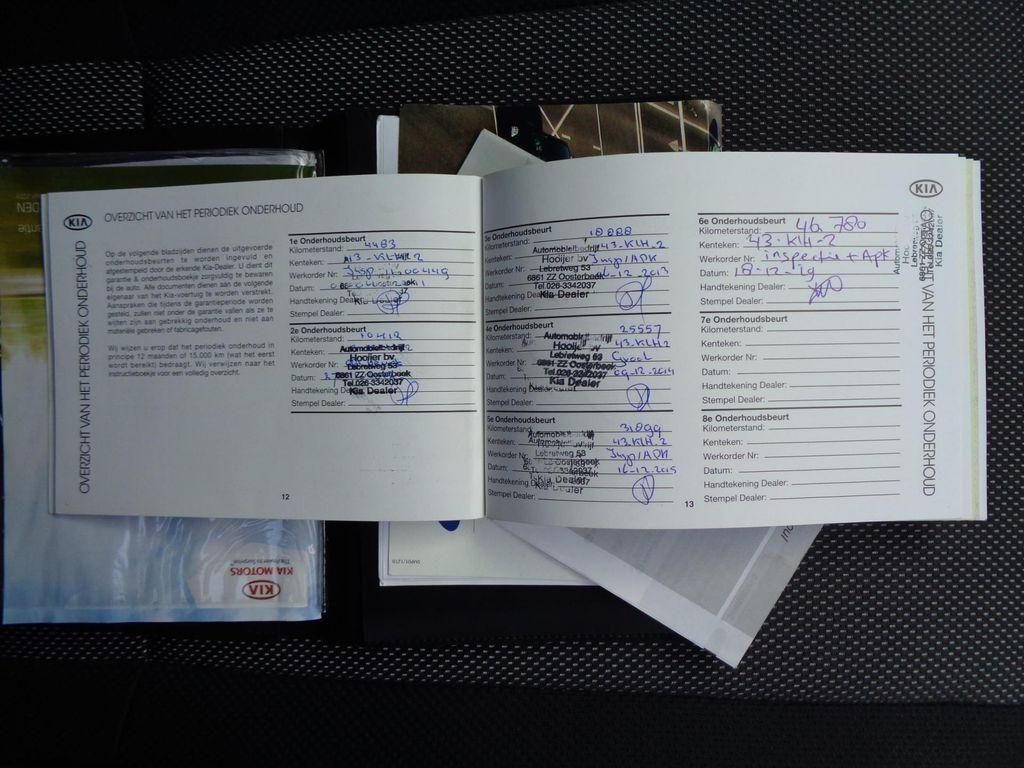 KIA
OVERZICHT VAN HET PERIODIEK ONDERHOUD
OVERZICHT VAN HET PERIODIEK ONDERHOUD
Op de volgende bladzijden dienen de uitgevoerde
onderhoudsbeurten te worden ingevuld en
afgestempeld door de erkende Kia-Dealer. U dient dit
garantie & onderhoudsboekje zorgvuldig te bewaren
bij de auto. Alle documenten dienen aan de volgende
eigenaar van het Kia-voertuig te worden verstrekt.
Aanspraken die tijdens de garantieperiode worden
gesteld, zullen niet onder de garantie vallen als ze te
wijten zijn aan gebrekkig onderhoud en niet aan
materiële gebreken of fabricagefouten.
Wij wijzen u erop dat het periodiek onderhoud in
principe 12 maanden of 15.000 km (wat het eerst
wordt bereikt) bedraagt. Wij verwijzen naar het
instructieboekje voor een volledig overzicht.
1e Onderhoudsbeurt
Kilometerstand: 4483
Kenteken: 43-KLH-2
Werkorder Nr:
Datum:
Handtekening
Stempel Dealer:
2e Onderhoudsbeurt
Kilometerstand: 10412
Kenteken:
Automobielbedrijf
Hooijer bv
Werkorder Nr:
Lebretweg 53
Datum:
6861 ZZ Oosterbeek
Tel.026-3342037
Handtekening
Kia Dealer
Stempel Dealer:
12
3e Onderhoudsbeurt
Kilometerstand:
Automobielbedrijf
Kenteken: 43-KLH-2
Hooijer bv
Werkorder Nr: Insp/APK
Lebretweg 53
Datum: -12-2013
6861 ZZ Oosterbeek
Tel.026-3342037
Handtekening Dealer
Kia Dealer
Stempel Dealer:
4e Onderhoudsbeurt
Kilometerstand: 25557
Automobielbedrijf
Kenteken: 43-KLH-2
Hooijer bv
Werkorder Nr: Groot
Lebretweg 53
Datum: 09-12-2014
6861 ZZ Oosterbeek
Tel.026-3342037
Handtekening
Kia Dealer
Stempel Dealer:
5e Onderhoudsbeurt
Kilometerstand: 31099
Automobielbedrijf
Kenteken: 43-KLH-2
Werkorder Nr: Insp/APK
Lebretweg 53
Datum: 16-12-2015
Handtekening
Kia Dealer
Stempel Dealer:
6e Onderhoudsbeurt
Kilometerstand: 46.780
Kenteken: 43-KLH-2
Werkorder Nr: inspectie + Apk
Datum: 18-12-19
Handtekening Dealer:
Stempel Dealer:
7e Onderhoudsbeurt
Kilometerstand:
Kenteken:
Werkorder Nr:
Datum:
Handtekening Dealer:
Stempel Dealer:
8e Onderhoudsbeurt
Kilometerstand:
Kenteken:
Werkorder Nr:
Datum:
Handtekening Dealer:
Stempel Dealer:
13
KIA
Kia Dealer
VAN HET PERIODIEK ONDERHOUD
KIA MOTORS
The Power to Surprise
KIA